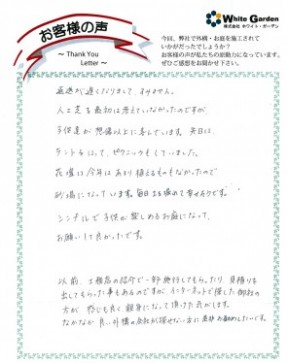 White Garden
株式会社 ホワイト・ガーデン
お客様の声
～ Thank You
Letter ～
今回、弊社で外構・お庭を施工されて
いかがだったでしょうか?
お客様の声が私たちの原動力になっています。
ぜひご感想をお聞かせ下さい。
返送が遅くなりまして、すみません。
人工芝を最初は考えていなかったのですが、
子供達が想像以上に喜んでいます。先日は、
テントをはって、ピクニックもしていました。
花壇は今年はあまり植えるものもなかったので
砂場になっています。毎日土を眺めて幸せそうです。
シンプルで子供が楽しめるお庭になって、
お願いして良かったです。
以前、工務店の紹介で一部施工してもらったり、見積りを
出してもらった事もあるのですが、インターネットで探した御社の
方が、感じも良く親身になって頂けた気がします。
なかなか良い外構の会社が探せない方に是非お勧めしたいです。